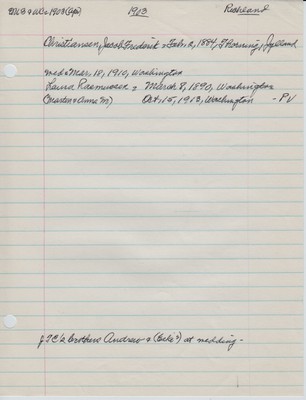 1913 Richland
Christiansen, Jacob Frederick Feb. 2, 1884, Thorning, Jylland
med Mar. 18, 1910, Washington
Laura Rasmussen March 8, 1890, Washington
(Marten & Anna M) Oct. 15, 1913, Washington - PV
JFC's brothers Andrew & at wedding -